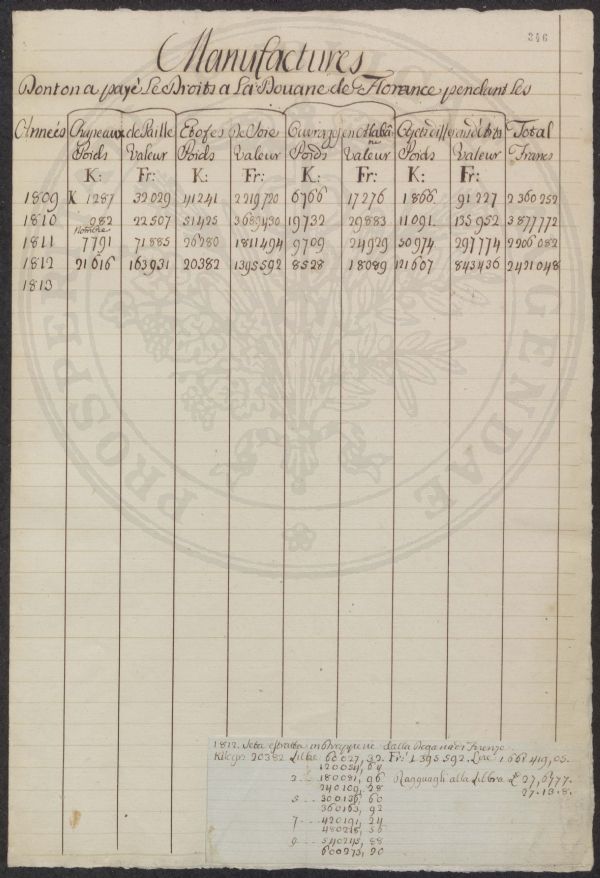 346
Manufactures
Dont on a payé Le Droits a La Douane de Florance pendant les
Années Chapeaux de Paille Etofes De Soie Ouvrages en Albâtre Objets different d'Arts Total
Poids Valeur Poids Valeur Poids Valeur Poids Valeur Francs
K: Fr: K: Fr: K: Fr: K: Fr:
1809 K 1287 32029 41241 2219720 6766 17276 1866 91227 2360252
1810 982 22507 51425 3689430 19732 29883 11091 135952 3877772
Nombre
1811 7791 71885 26280 1811494 9709 24929 50974 297774 2206082
1812 21616 163931 20382 1395592 8528 18089 121607 843436 2421048
1813
PROSPER GENDAE
1812. Seta estratta in Drapperie dalla Dogana di Firenze
Kilogr 20382 Libbre 60027, 32. Fr: 1.395.592. Lire 1.661.419,05.
120054, 64
3 .. 180081, 96 Ragguagli alla Libbra £ 27,6777.
240109, 28 27.13.8.
5 .. 300136, 60
360163, 92
7 .. 420191, 24
480218, 56
9 .. 540245, 88
600273, 20